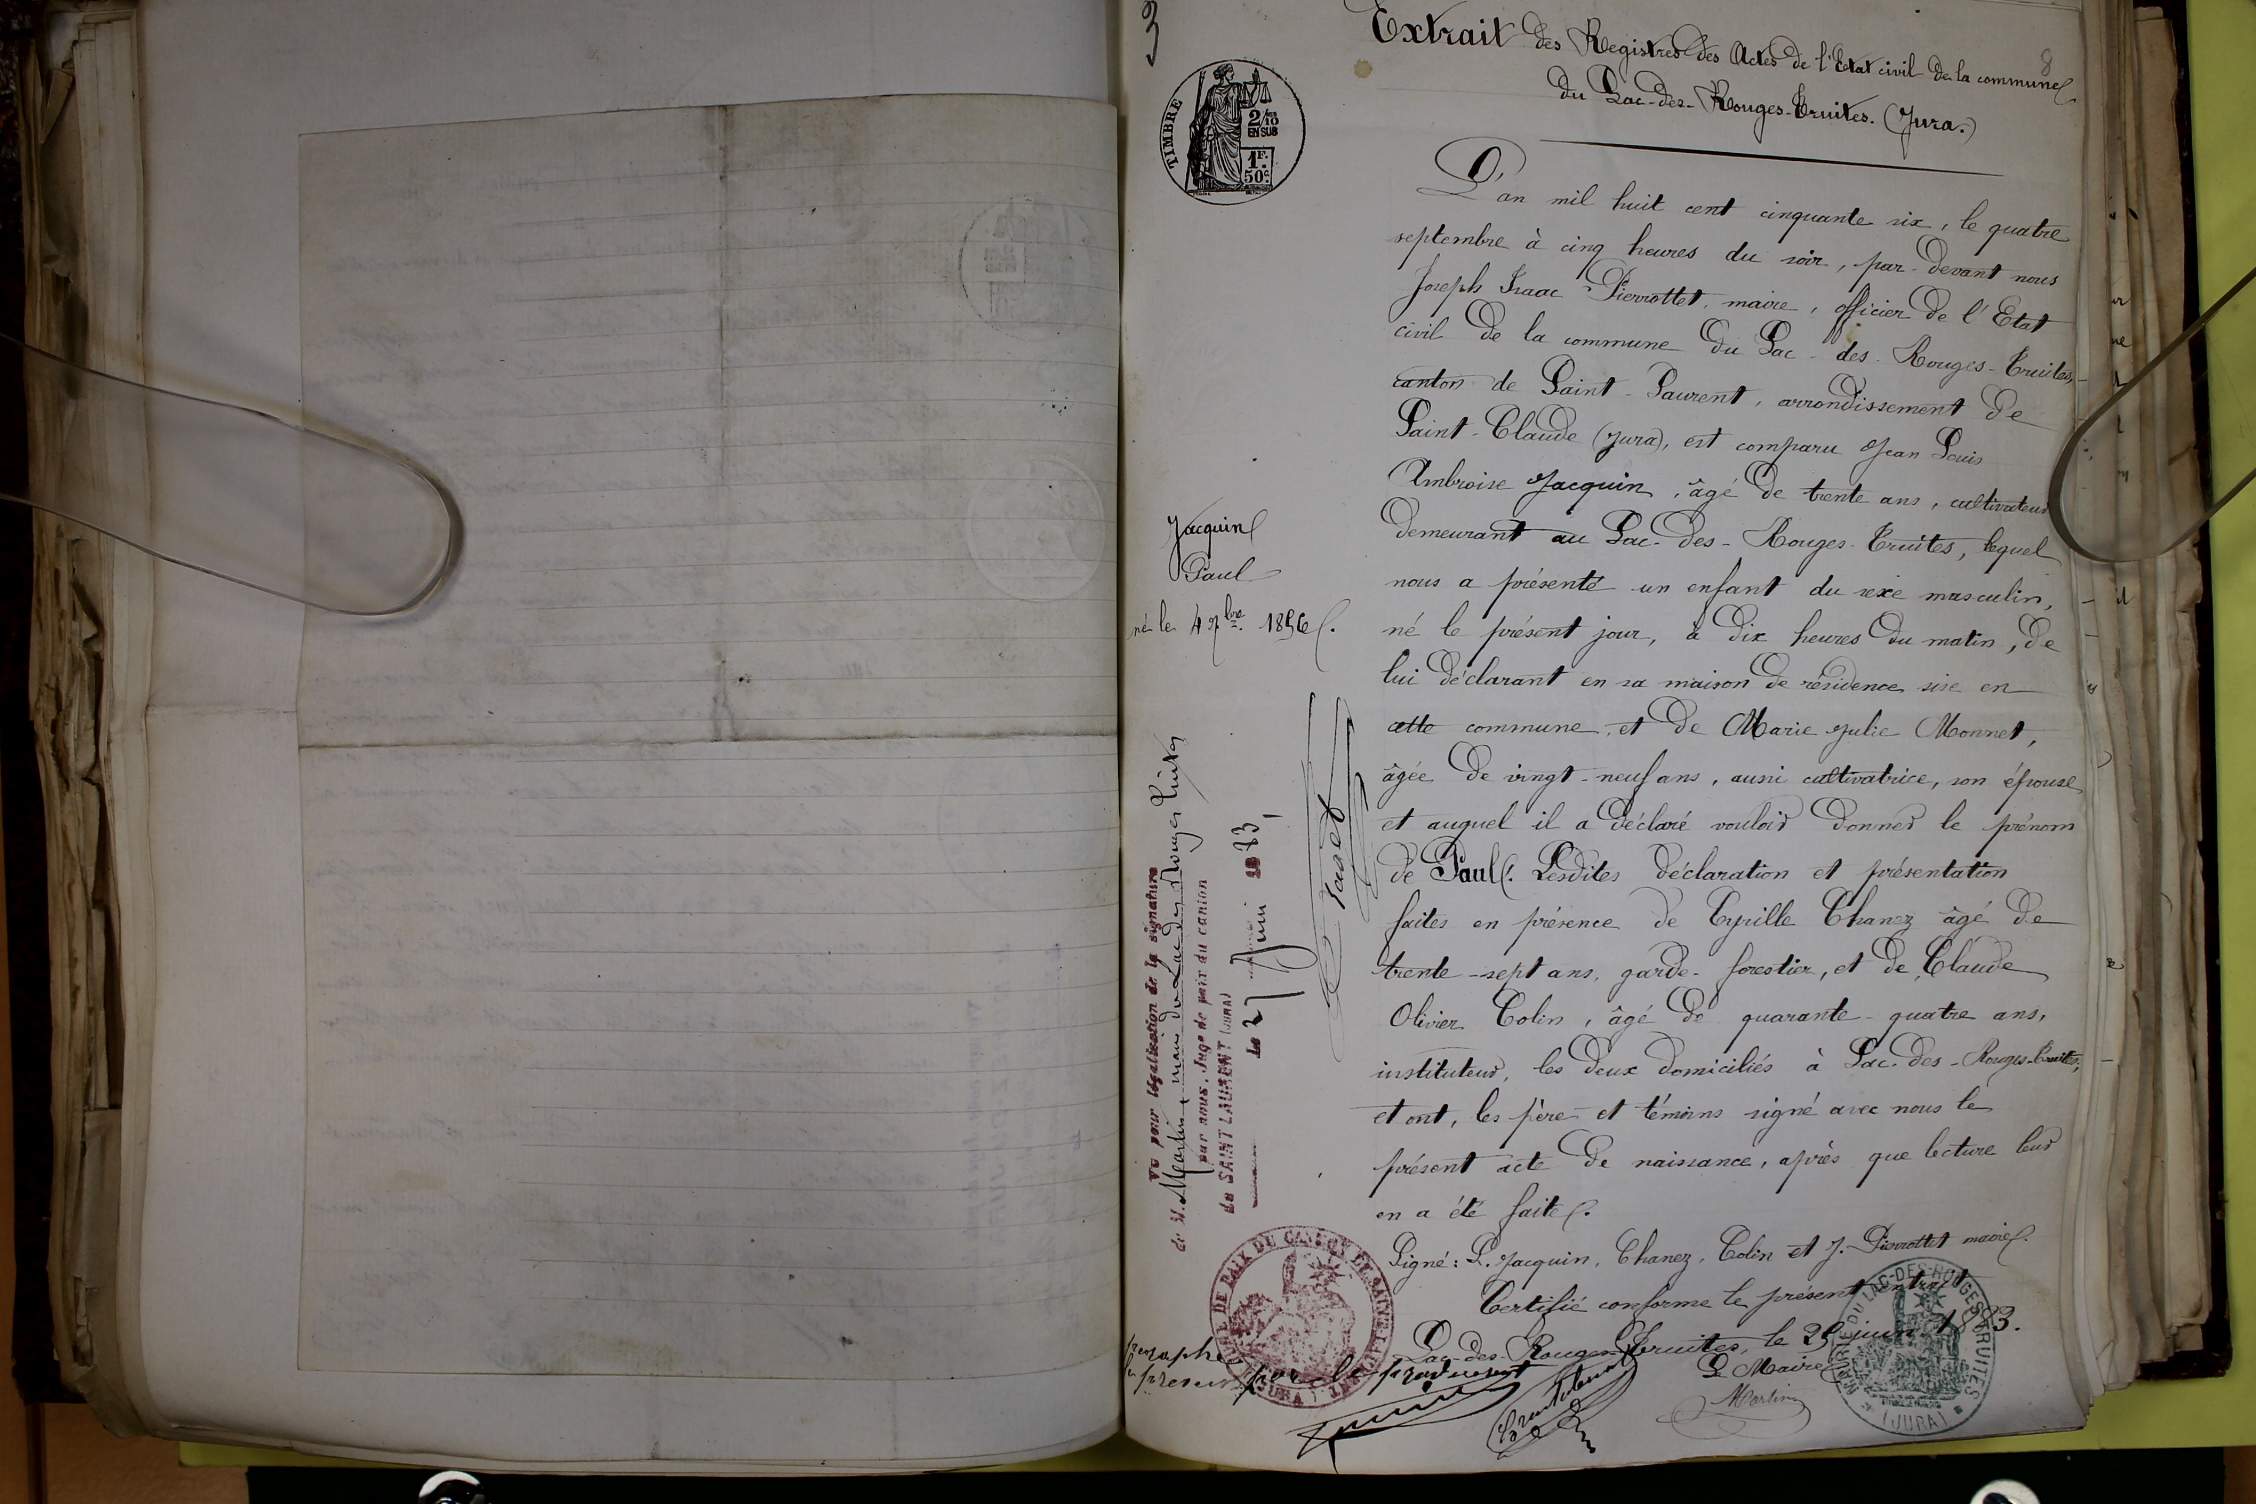 3
8
Extrait des Registres des Actes de l'Etat civil de la commune
du Lac-des-Rouges-Truites. (Jura.)
TIMBRE
2/10
EN SUS
1F.
50c
L'an mil huit cent cinquante six, le quatre
septembre à cinq heures du soir, par-devant nous
Joseph Isaac Pierrottet, maire, officier de l'Etat
civil de la commune du Lac-des-Rouges-Truites,
canton de Saint-Laurent, arrondissement de
Saint-Claude (Jura), est comparu Jean Louis
Ambroise Jacquin, âgé de trente ans, cultivateur
demeurant au Lac-des-Rouges-Truites, lequel
nous a présenté un enfant du sexe masculin,
né le présent jour, à dix heures du matin, de
lui déclarant en sa maison de résidence sise en
cette commune, et de Marie Julie Monnet,
âgée de vingt-neuf ans, aussi cultivatrice, son épouse
et auquel il a déclaré vouloir donner le prénom
de Paul. Lesdites déclaration et présentation
faites en présence de Cyrille Chanez âgé de
trente-sept ans, garde-forestier, et de Claude
Olivier Colin, âgé de quarante-quatre ans,
instituteur, les deux domiciliés à Lac-des-Rouges-Truites,
et ont, les père et témoins signé avec nous le
présent acte de naissance, après que lecture leur
en a été faite.
Signé: L. Jacquin, Chanez, Colin et J. Pierrottet maire.
Certifié conforme le présent extrait
Lac-des-Rouges-Truites, le 25 juin 1883.
Le Maire
Martin
MAIRIE DU LAC-DES-ROUGES-TRUITES
(JURA)
Jacquin
Paul
né le 4 7bre 1856.
Vu pour légalisation de la signature
de M. Martin, maire du Lac des Rouges Truites
par nous, Juge de paix du canton
de SAINT LAURENT (JURA)
le 27 Juin 1883,
DE PAIX DU CANTON DE SAINT-LAURENT
(JURA)
par le